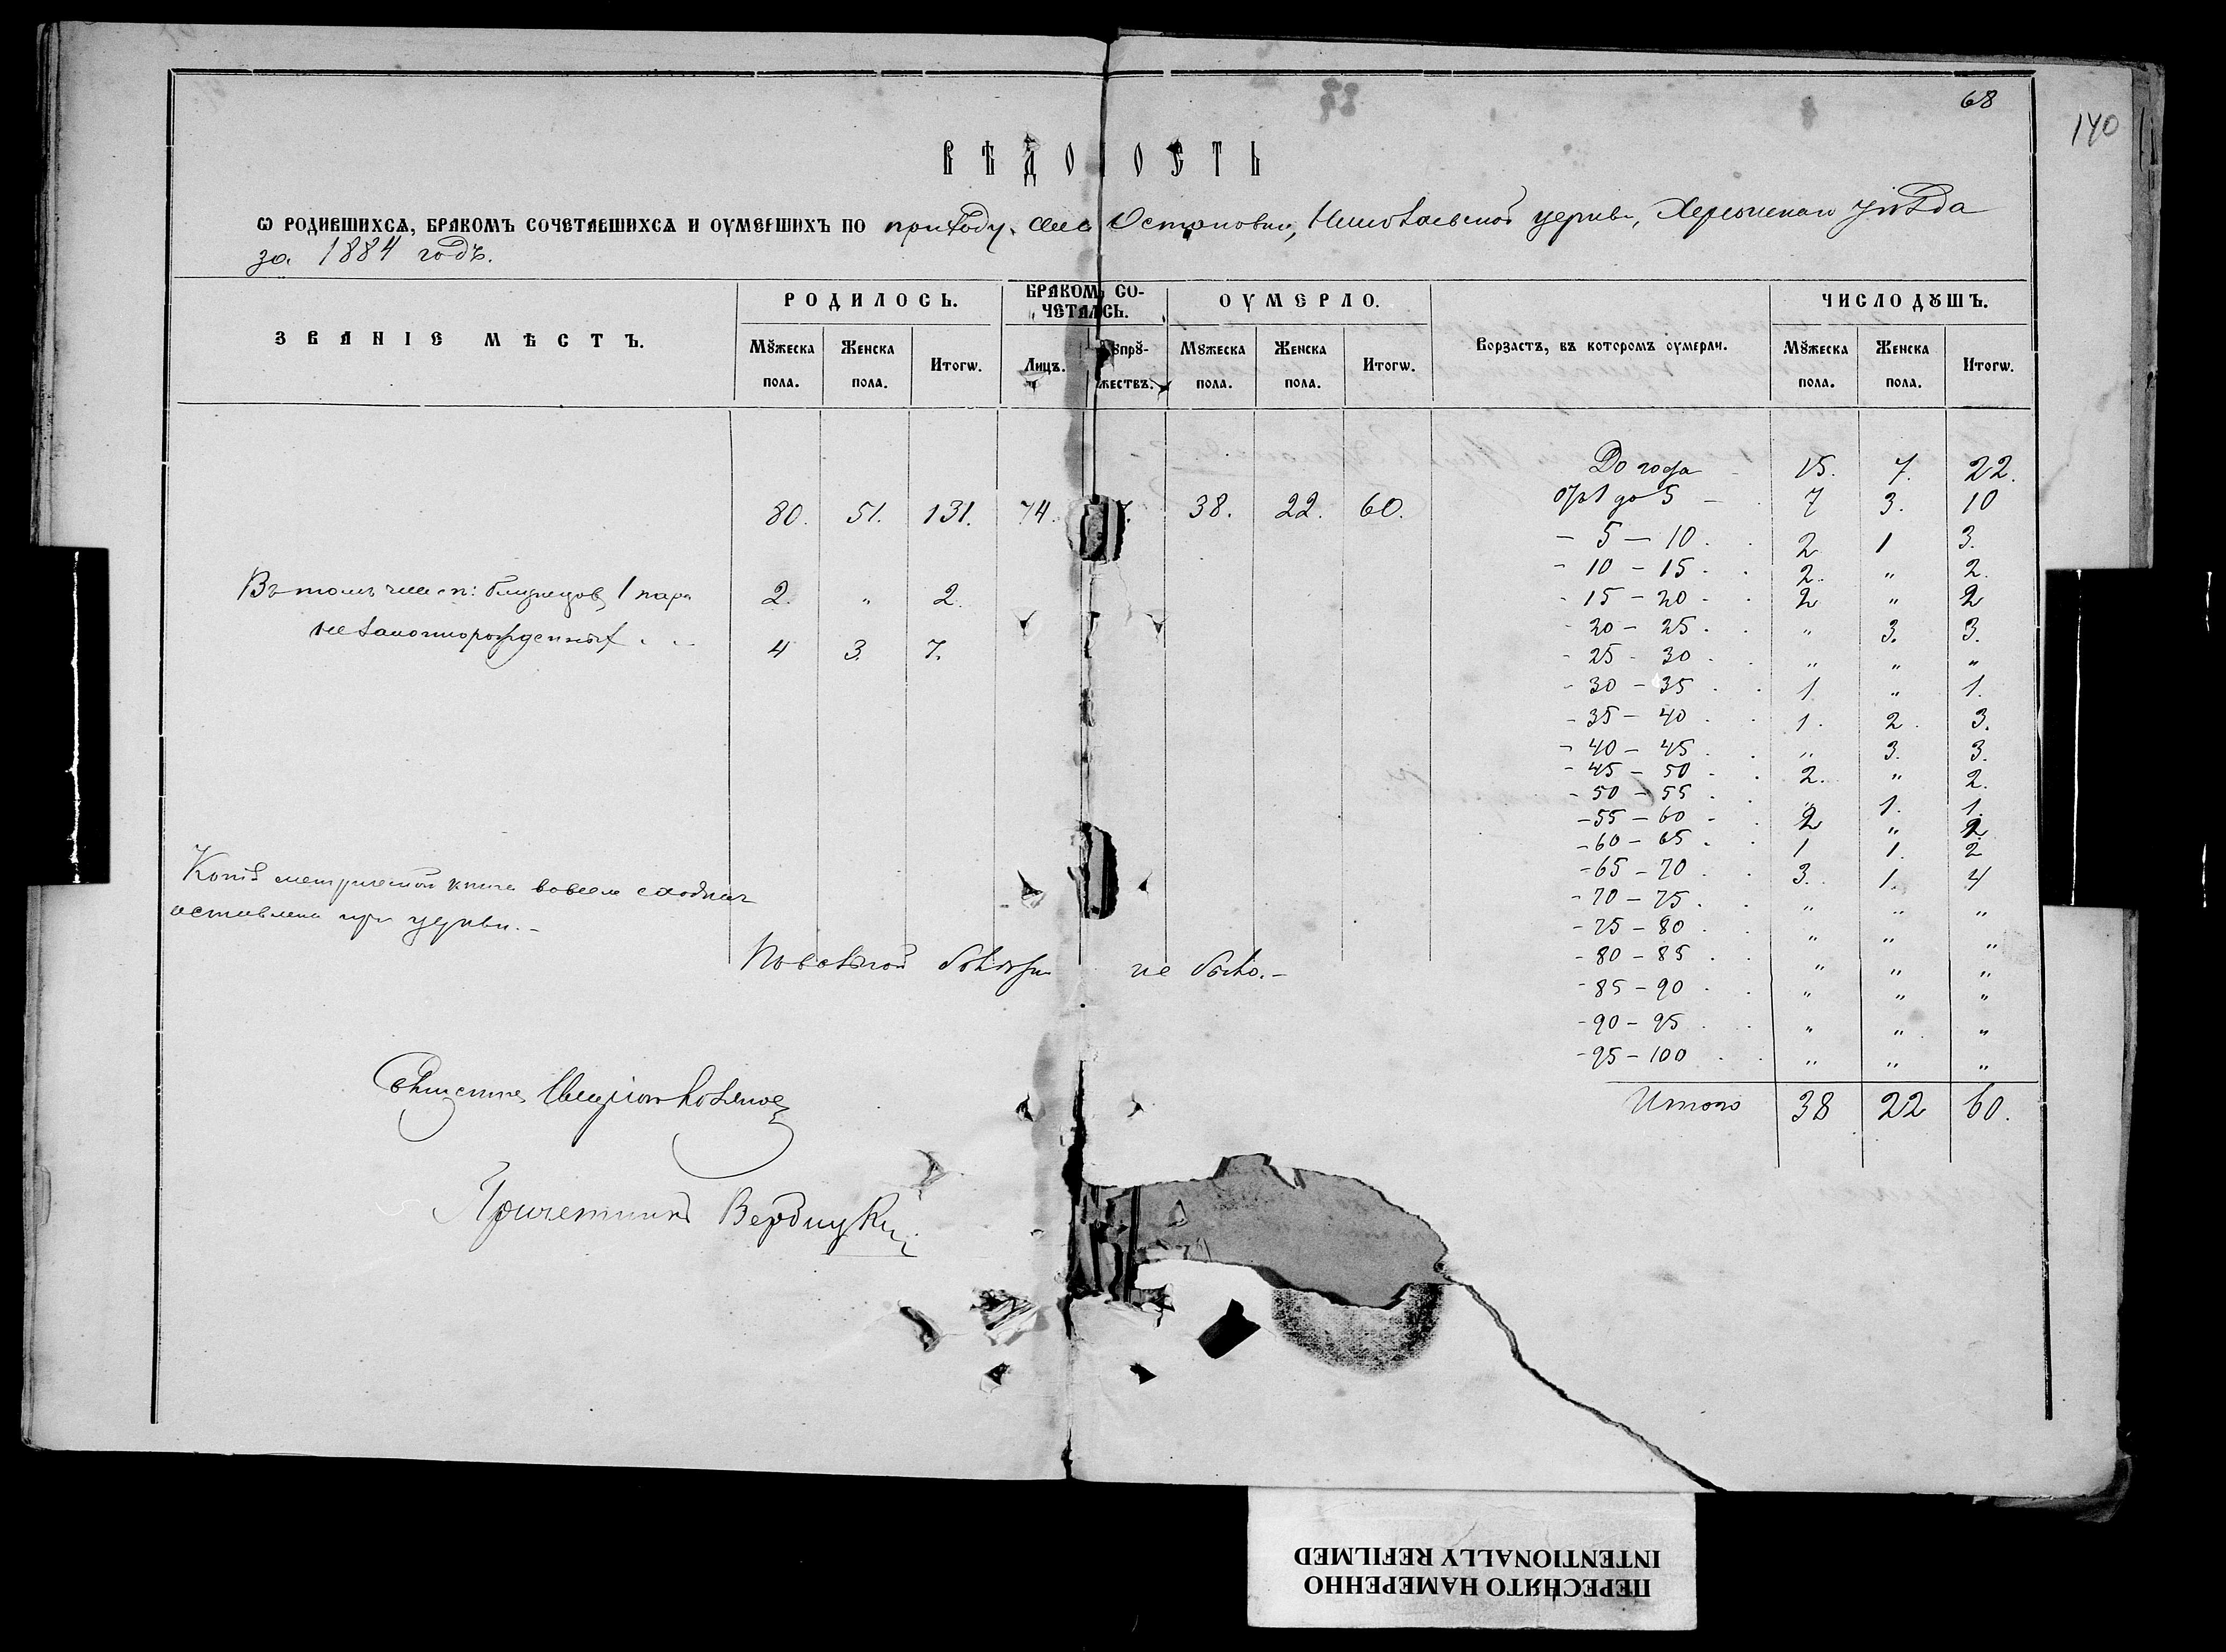 68
140
ВѢДО ОСТЬ
Ѡ РОДИВШИХСѦ, БРАКОМЪ СОЧЕТАВШИХСѦ И ОУМЕРШИХЪ ПО приходу села Остаповки, Николаевской церкви, Херсонскаго уѣзда
за 1884 годъ.
ЗВАНІЕ МѢСТЪ. РОДИЛОСЬ. БРАКОМЪ СО-ЧЕТАЛОСЬ. ОУМЕРЛО. Ворзастъ, въ которомъ оумерли. ЧИСЛО ДꙊШЪ.
Мꙋжеска пола. Женска пола. Итогѡ. Лицъ. Супрꙋ-жествъ. Мꙋжеска пола. Женска пола. Итогѡ. Мꙋжеска пола. Женска пола. Итогѡ.
До года 15. 7. 22.
80. 51. 131. 74. 38. 22. 60. отъ 1 до 5 — 7 3. 10
— 5 — 10 . . 2 1 3.
- 10 — 15 . . 2. " 2.
Въ томъ числѣ: близнецовъ 1 пара 2. " 2.
- 15 — 20 - . 2 " 2
- 20 — 25 . . " 3. 3.
незаконнорожденныхъ . . 4 3. 7.
- 25 - 30 . . " " "
- 30 — 35 . . 1 " 1.
- 35 — 40 . . 1. 2. 3.
- 40 — 45 . . " 3. 3.
- 45 — 50 . . 2. " 2.
- 50 — 55 . . " 1. 1.
- 55 — 60 - . 2 " 2.
- 60 — 65 . . 1 1. 2
- 65 — 70 . . 3. 1. 4
- 70 — 75 . . " " "
- 75 — 80 . . " " "
- 80 — 85 . . " " "
- 85 — 90 . . " " "
- 90 — 95 . . " " "
- 95 — 100 . . " " "
Итого 38 22 60.
Копія метрической книги во всемъ сходная
оставлена при церкви. —
Повальной болѣзни не было. —
Священникъ
Причетникъ Вербицкій
ПЕРЕСНЯТО НАМЕРЕННО
INTENTIONALLY REFILMED